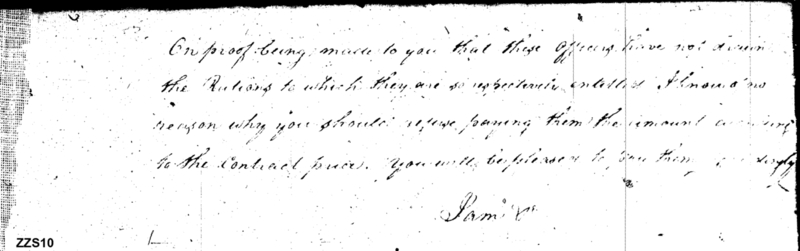 On proof being made to you that these Officers have not drawn
the Rations to which they are so respectively entitled I know no
reason why you should refuse paying them the amount according
to the Contract price. You will be pleased to pay them
I am &c
ZZS10